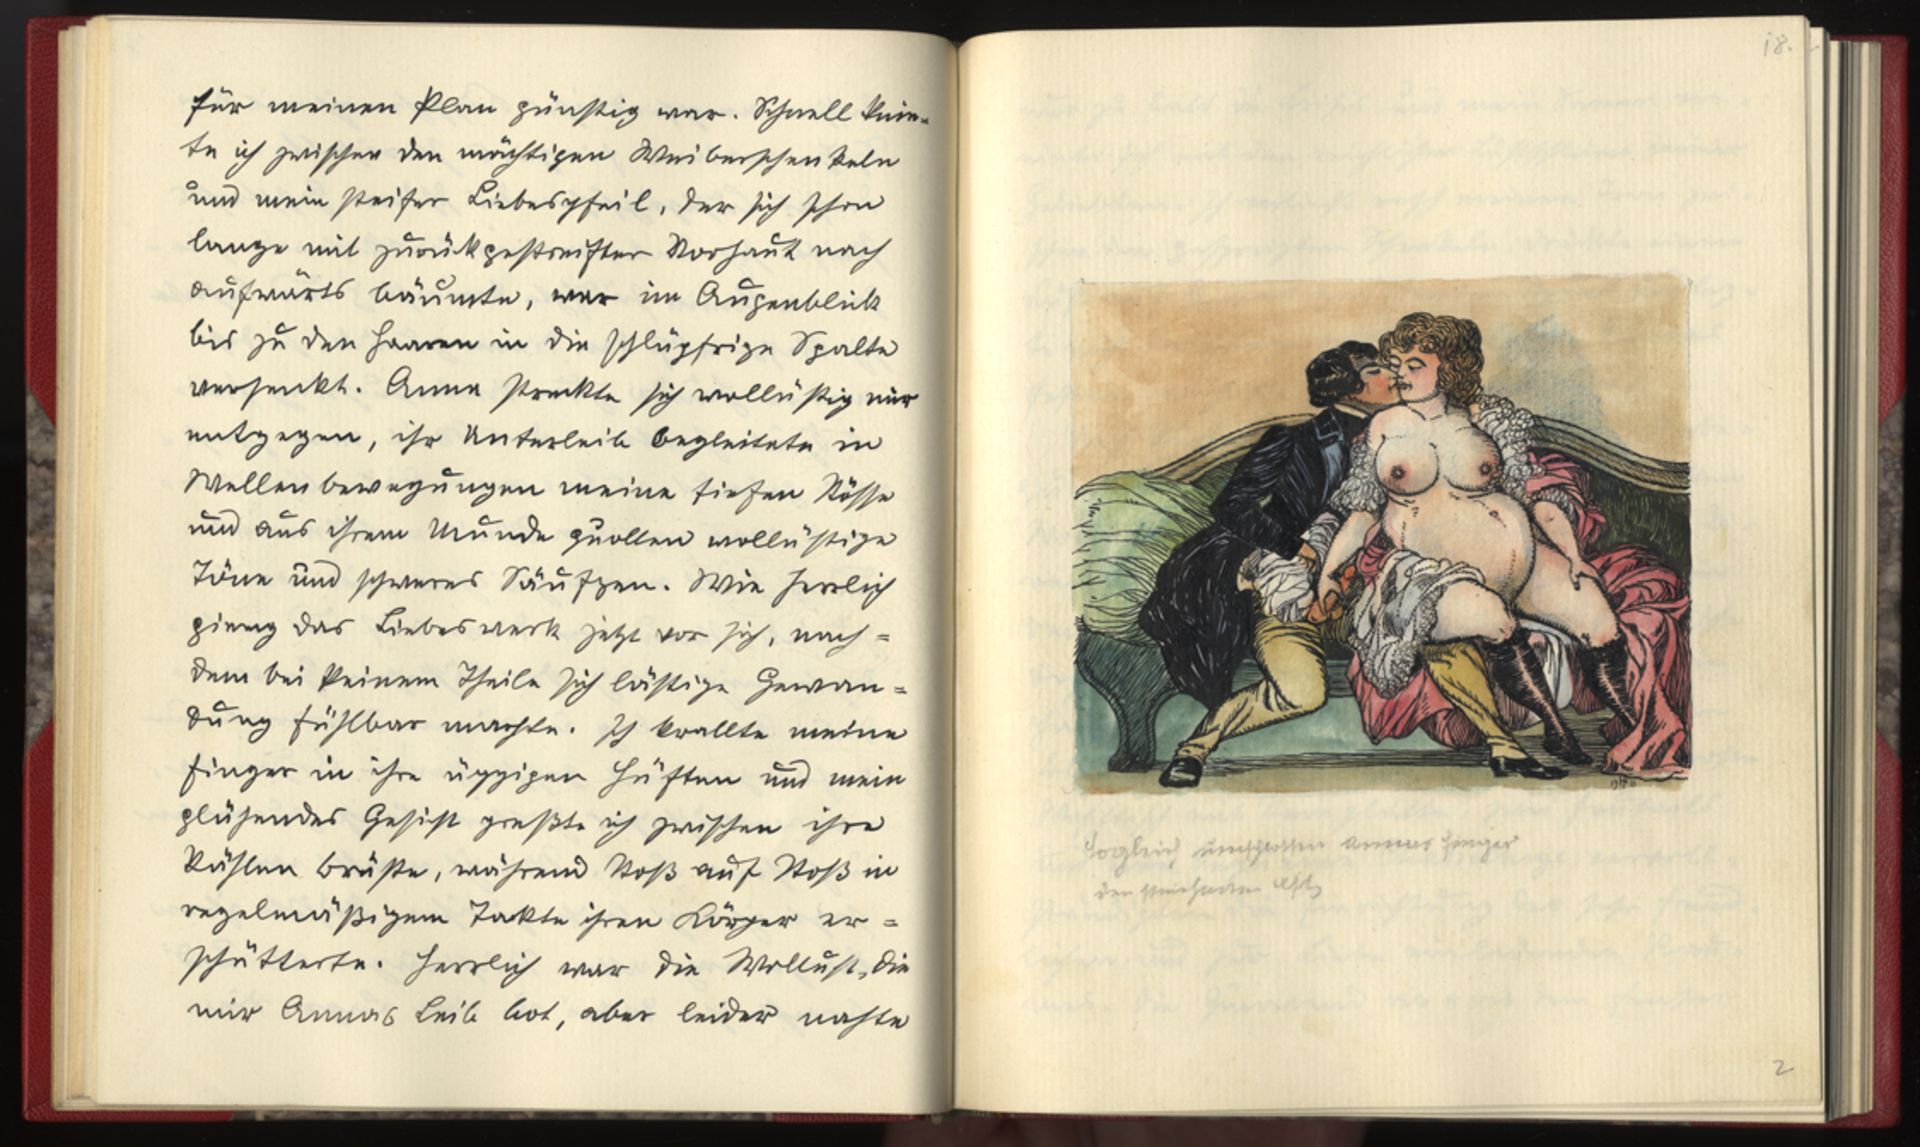 für meinen Plan günstig war. Schnell knie-
te ich zwischen den mächtigen Weiberschenkeln
und mein steifer Liebespfeil, der sich schon
lange mit zurückgestreifter Vorhaut nach
aufwärts bäumte, war im Augenblick
bis zu den Haaren in die schlüpfrige Spalte
versenkt. Anna streckte sich wollüstig mir
entgegen, ihr Unterleib begleitete in
Wellenbewegungen meine tiefen Stösse
und aus ihrem Munde quollen wollüstige
Töne und schweres Säufzen. Wie herrlich
gieng das Liebeswerk jetzt vor sich, nach=
dem bei keinem Theile sich lästige Gewan=
dung fühlbar machte. Ich krallte meine
Finger in ihre üppigen Hüften und mein
glühendes Gesicht preßte ich zwischen ihre
kühlen Brüste, während Stoß auf Stoß in
regelmäßigem Takte ihren Körper er=
schütterte. Herrlich war die Wollust, die
mir Annas Leib bot, aber leider nahte
18.
Sogleich umschlossen Annas Finger
den
2